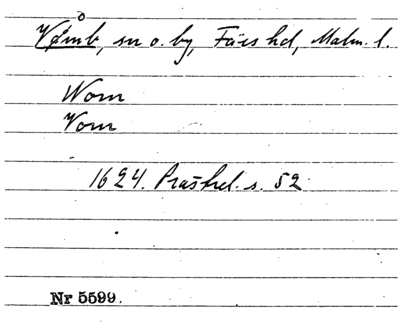 Vomb, sn o. by, Färs hd, Malm. l.
Wom
Vom
1624. Prästrel. s. 52
Nr 5599.